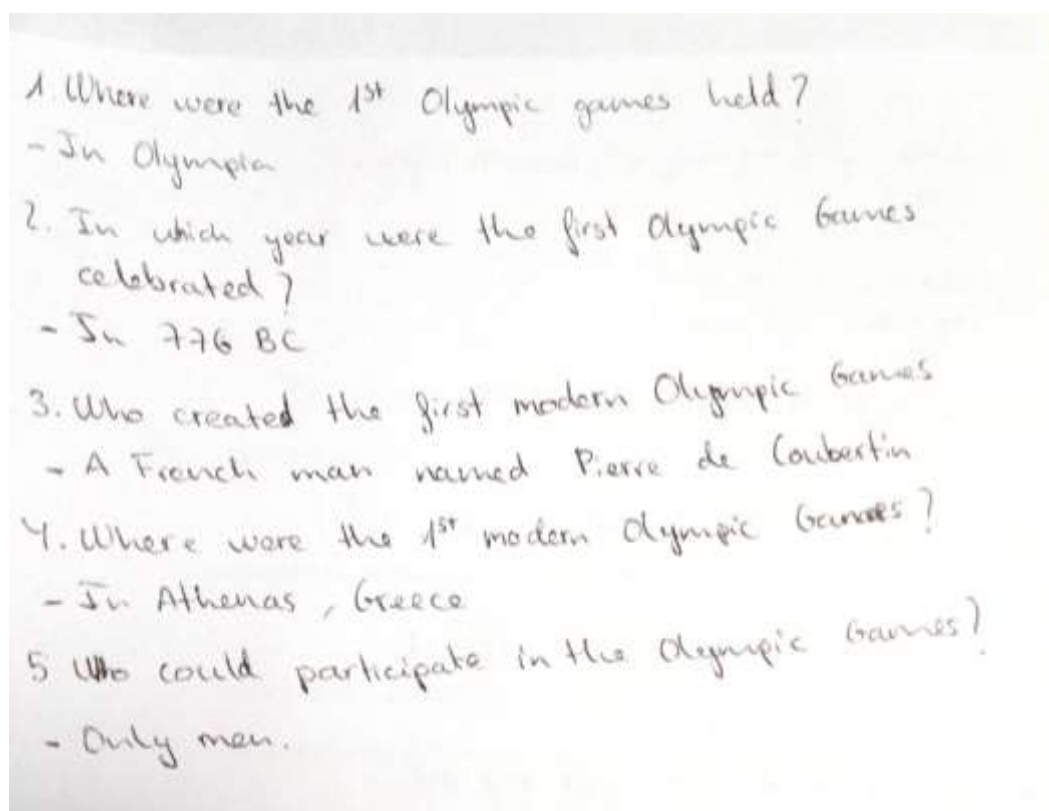 1. Where were the 1st Olympic games held?
- In Olympia
2. In which year were the first Olympic Games
celebrated?
- In 776 BC
3. Who created the first modern Olympic Games
- A French man named Pierre de Coubertin
4. Where were the 1st modern Olympic Games?
- In Athenas, Greece
5 Who could participate in the Olympic Games?
- Only men.